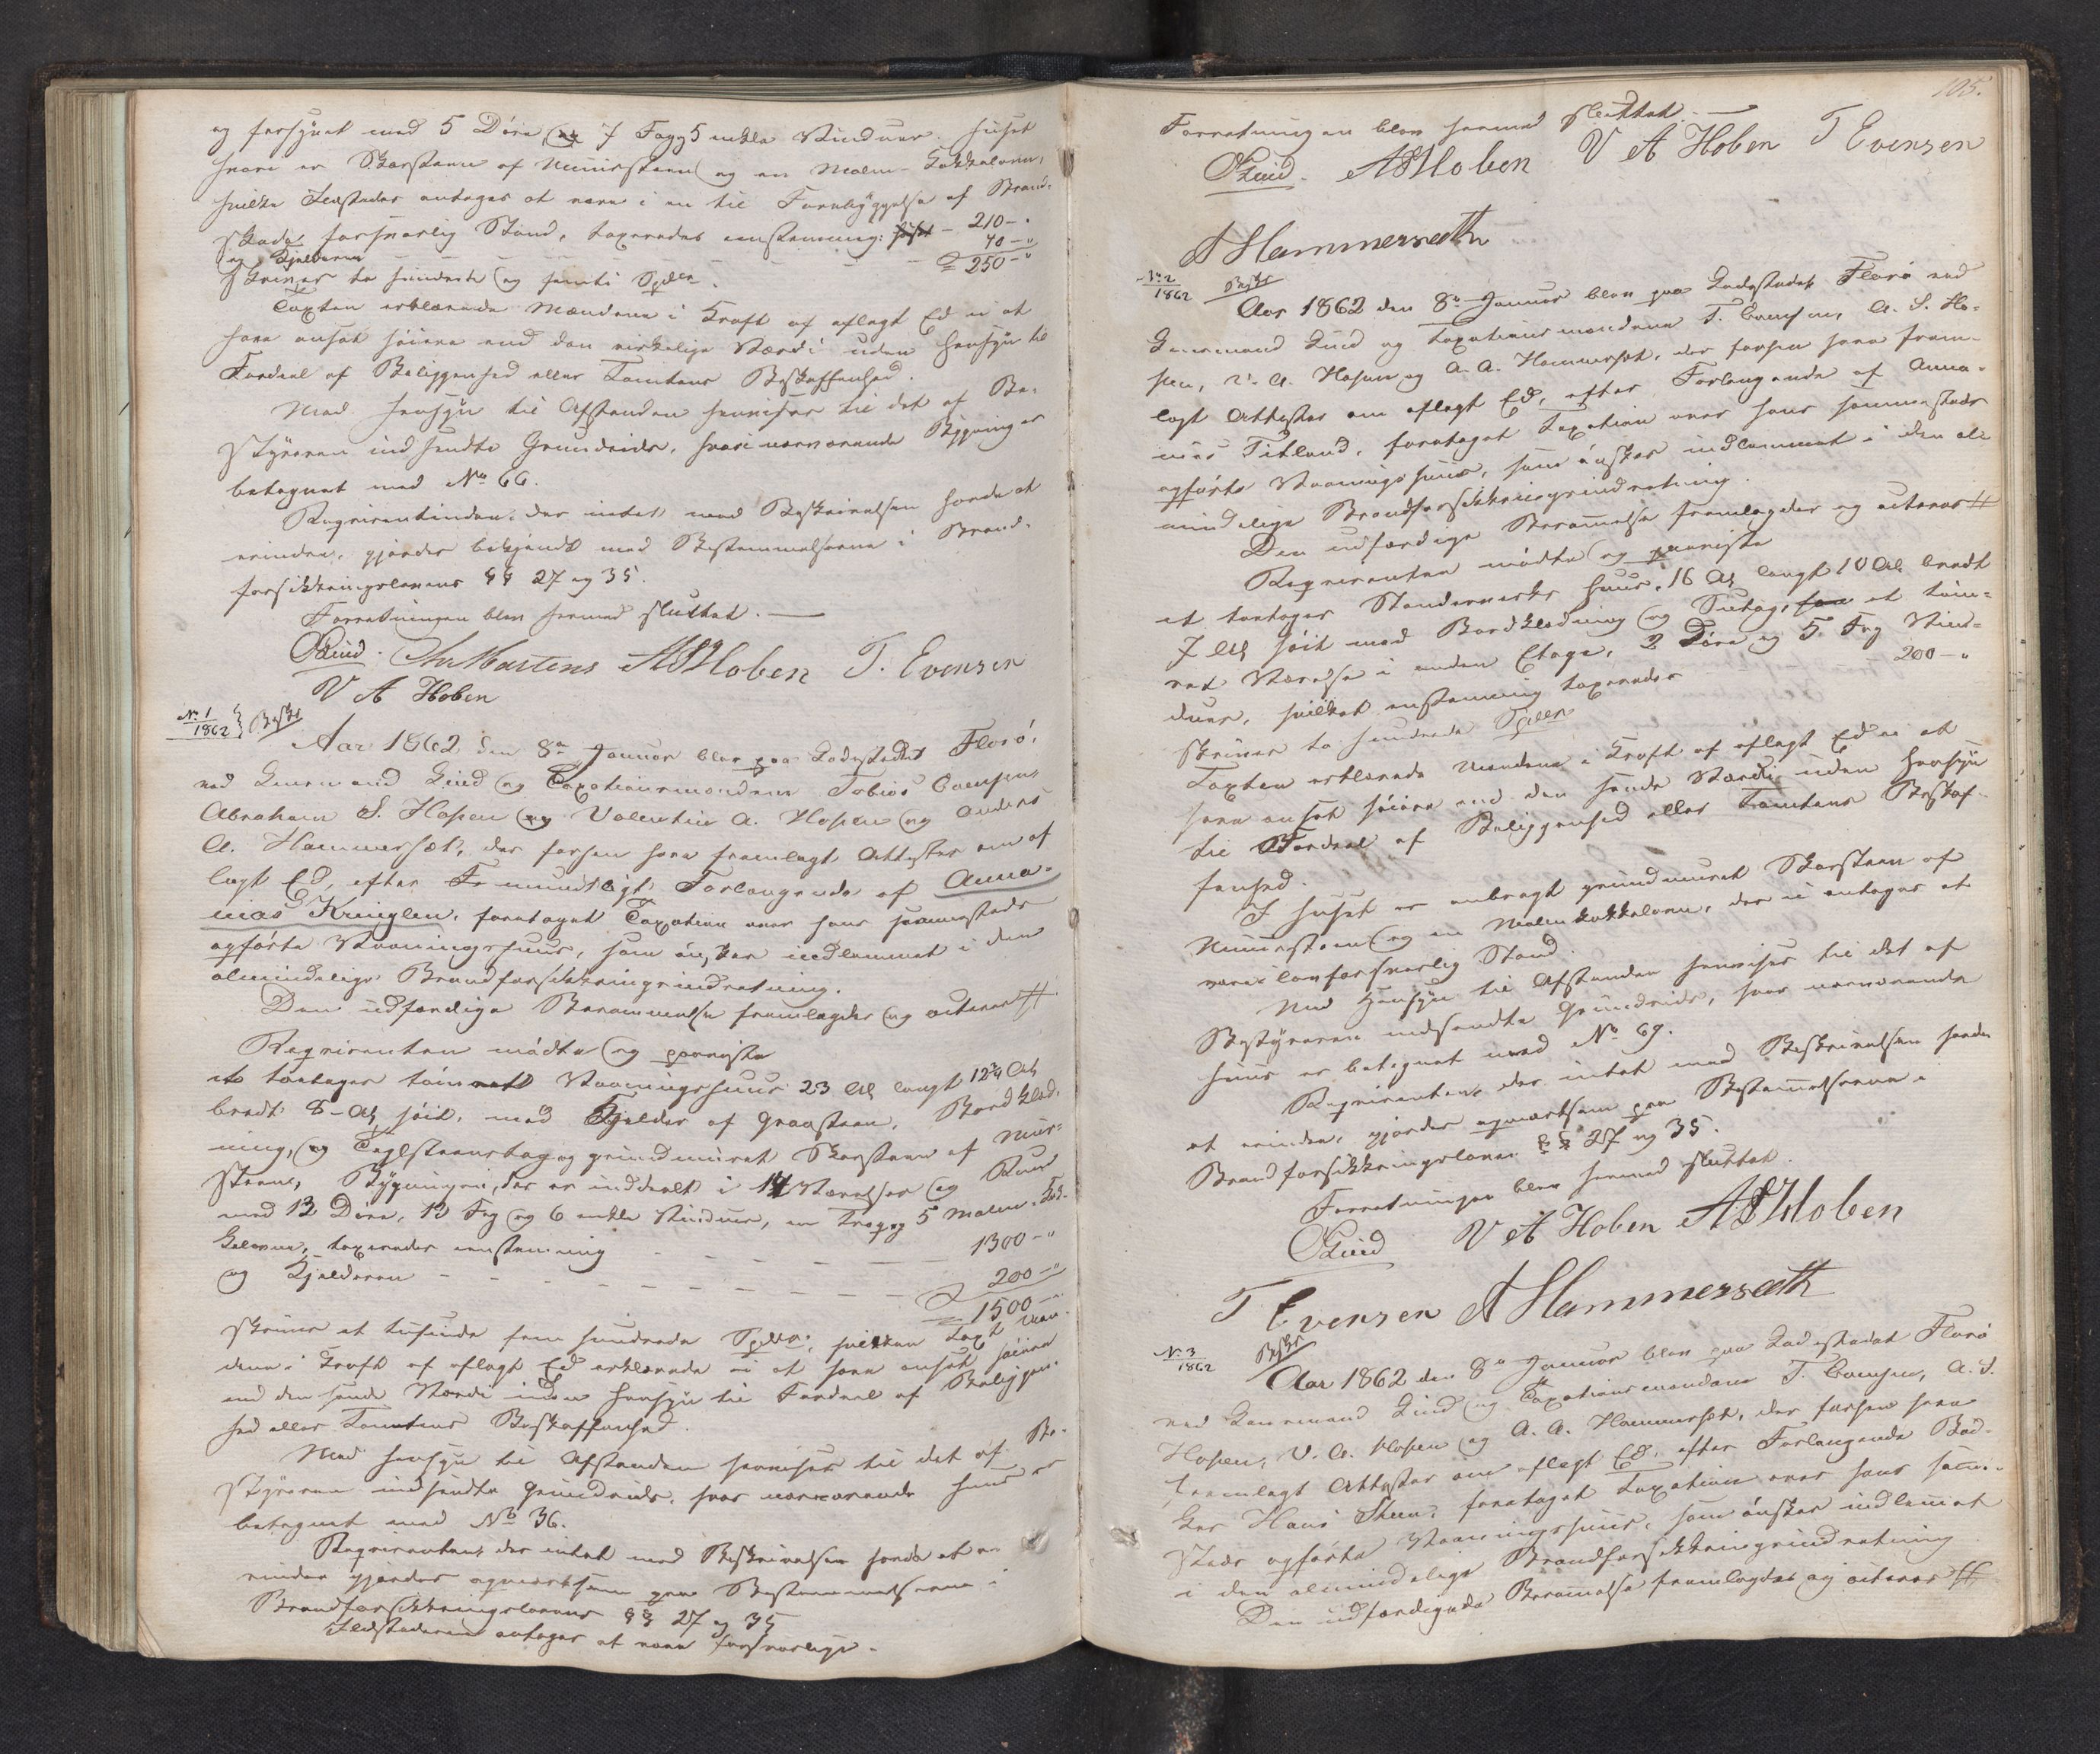 og forsynet med 5 Døre og 7 Fag 5 enkle Vinduer. Huset
hvori er Skorsteen af Muursteen og en Malm-Kakkelovn,
hvilke Ildsteder antages at være i en til Forebyggelse af Brand-
skade forsvarlig Stand, taxeredes eenstemmig: - 210 - "
og Kjelderen - - - 40 - "
= 250 - "
skriver to hundrede og femti Spdlr.
Taxten erklærede Mændene i Kraft af aflagt Ed ei at
have ansat høiere end den virkelige Værdi uden Hensyn til
Fordeel af Beliggenhed eller Tomtens Beskaffenhed.
Med Hensyn til Afstanden henvises til det af Be-
styreren indsendte Grundrids, hvori nærværende Bygninger
betegnet med No 66.
Reqvirentinden, der intet mod Beskrivelsen havde at
erindre, gjordes bekjendt med Bestemmelserne i Brand-
forsikkringslovens §§ 27 og 35.
Forretningen blev hermed sluttet. —
Qvid. Chr Martens A S Hoben T. Evensen
V A Hoben
No. 1
1862 } Beskr
Aar 1862 den 8de Januar blev paa Ladestedet Florø,
ved Lensmand Qvid og Taxationsmændene Tobias Evensen,
Abraham S. Hopen og Valentin A. Hopen og Anders
A. Hammersæt, der forhen have fremlagt Attester om af
lagt Ed, efter mundtligt Forlangende af Anna-
nias Kringlen, foretaget Taxation over hans sammesteds
opførte Vaaningshuus, som ønskes indlemmet i den
almindelige Brandforsikkringsindretning.
Den udfærdige Berammelse fremlagdes og acteres #
Reqvirenten mødte og paaviste
et toetages tømret Vaaningshuus 23 Al langt 12¾ Al
bredt 8 - Al høit, med Kjelder af Graasteen, Bordklæd-
ning, og Teglsteenstag og grundmuret Skorsteen af Muur-
steen, Bygningen, der er inddeelt i 14 Værelser og Rum
med 13 Døre, 13 Fag og 6 enkle Vinduer, en Trap og 5 Malm-Kak-
kelovne, taxeredes eenstemmig - - - 1300 - "
og Kjelderen - - - - - - - - - 200 - "
= 1500 - "
skriver et tusinde fem hundrede Spdlr, hvilken Taxt Mæn-
dene i Kraft af aflagt Ed erklærede ei at have ansat høiere
end den sande Værdi uden Hensyn til Fordeel af Beliggen-
hed eller Tomtens Beskaffenhed.
Med Hensyn til Afstanden henvises til det af Be-
styreren indsendte Grundrids, hvor nærværende Huus er
betegnet med No 36.
Reqvirenten, der intet mod Beskrivelsen havde at e-
rindre gjordes opmærksom paa Bestemmelserne i
Brandforsikkringslovens §§ 27 og 35
Ildstederne antages at være forsvarlige.
105.
Forretningen blev hermed sluttet. —
Qvid. A S Hoben V A Hoben T Evensen
A Hammersæth
No. 2
1862 Beskr
Aar 1862 den 8de Januar blev paa Ladestedet Florø ved
Lensmand Qvid og Taxationsmændene T. Evensen, A. S. Ho-
pen, V. A. Hopen og A. A. Hammersæt, der forhen have frem-
lagt Attester om aflagt Ed, efter Forlangende af Anna-
nias Titland, foretaget Taxation over hans sammesteds
opførte Vaaningshuus, som ønskes indlemmet i den al-
mindelige Brandforsikkringsindretning.
Den udfærdige Berammelse fremlagdes og acteres #
Reqvirenten mødte og paaviste
et toetages Standerværks Huus, 16 Al langt 10 Al bredt
7 Al høit med Bordklædning og et tøm-
ret Værelse i anden Etage, 2 Døre og 5 Fag Vind-
duer, hvilket eenstemmig taxeredes 200 - "
skriver to hundrede Spdlr
Taxten erklærede Mændene i Kraft af aflagt Ed ei at
have ansat høiere end den sande Værdi uden Hensyn
til Fordeel af Beliggenhed eller Tomtens Beskaf-
fenhed.
I Huset er anbragt grundmuret Skorsteen af
Muursteen og en Malmkakkelovn, der ei antages at
være i lovforsvarlig Stand.
Med Hensyn til Afstanden henvises til det af
Bestyreren indsendte Grundrids, hvor nærværende
Huus er betegnet med No 69.
Reqvirenten, der intet mod Beskrivelsen havde
at erindre, gjordes opmærksom paa Bestemmelserne i
Brandforsikkringsloven §§ 27 og 35.
Forretningen blev hermed sluttet.
Qvid V A Hoben A S Hoben
T Evensen A Hammersæth
No. 3
1862 Beskr
Aar 1862 den 8de Januar blev paa Ladestedet Florø
ved Lensmand Qvid og Taxationsmændene T. Evensen, A. S.
Hopen, V. A. Hopen og A. A. Hammersæt, der forhen have
fremlagt Attester om aflagt Ed, efter Forlangende Bød-
ker Hans Steen, foretaget Taxation over hans samme-
steds opførte Vaaningshuus, som ønskes indlemmet
i den almindelige Brandforsikkringsindretning
Den udfærdigede Berammelse fremlagdes og acteres #